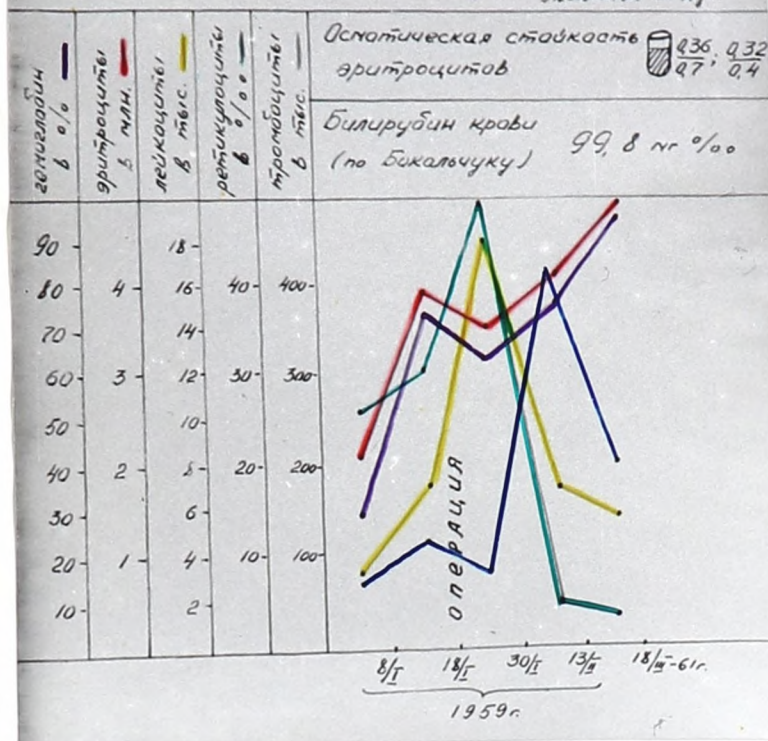 гемоглобин
в %
эритроциты
в млн.
лейкоциты
в тыс.
ретикулоциты
в %00
тромбоциты
в тыс.
Осмотическая стойкость
эритроцитов
0,36 0,32
0,7 ; 0,4
Билирубин крови
(по Бокальчуку) 99,8 мг %00
90 18
80 4 16 40 400
70 14
60 3 12 30 300
50 10
40 2 8 20 200
30 6
20 1 4 10 100
10 2
операция
8/I 18/I 30/I 13/II 18/III-61г.
1959г.